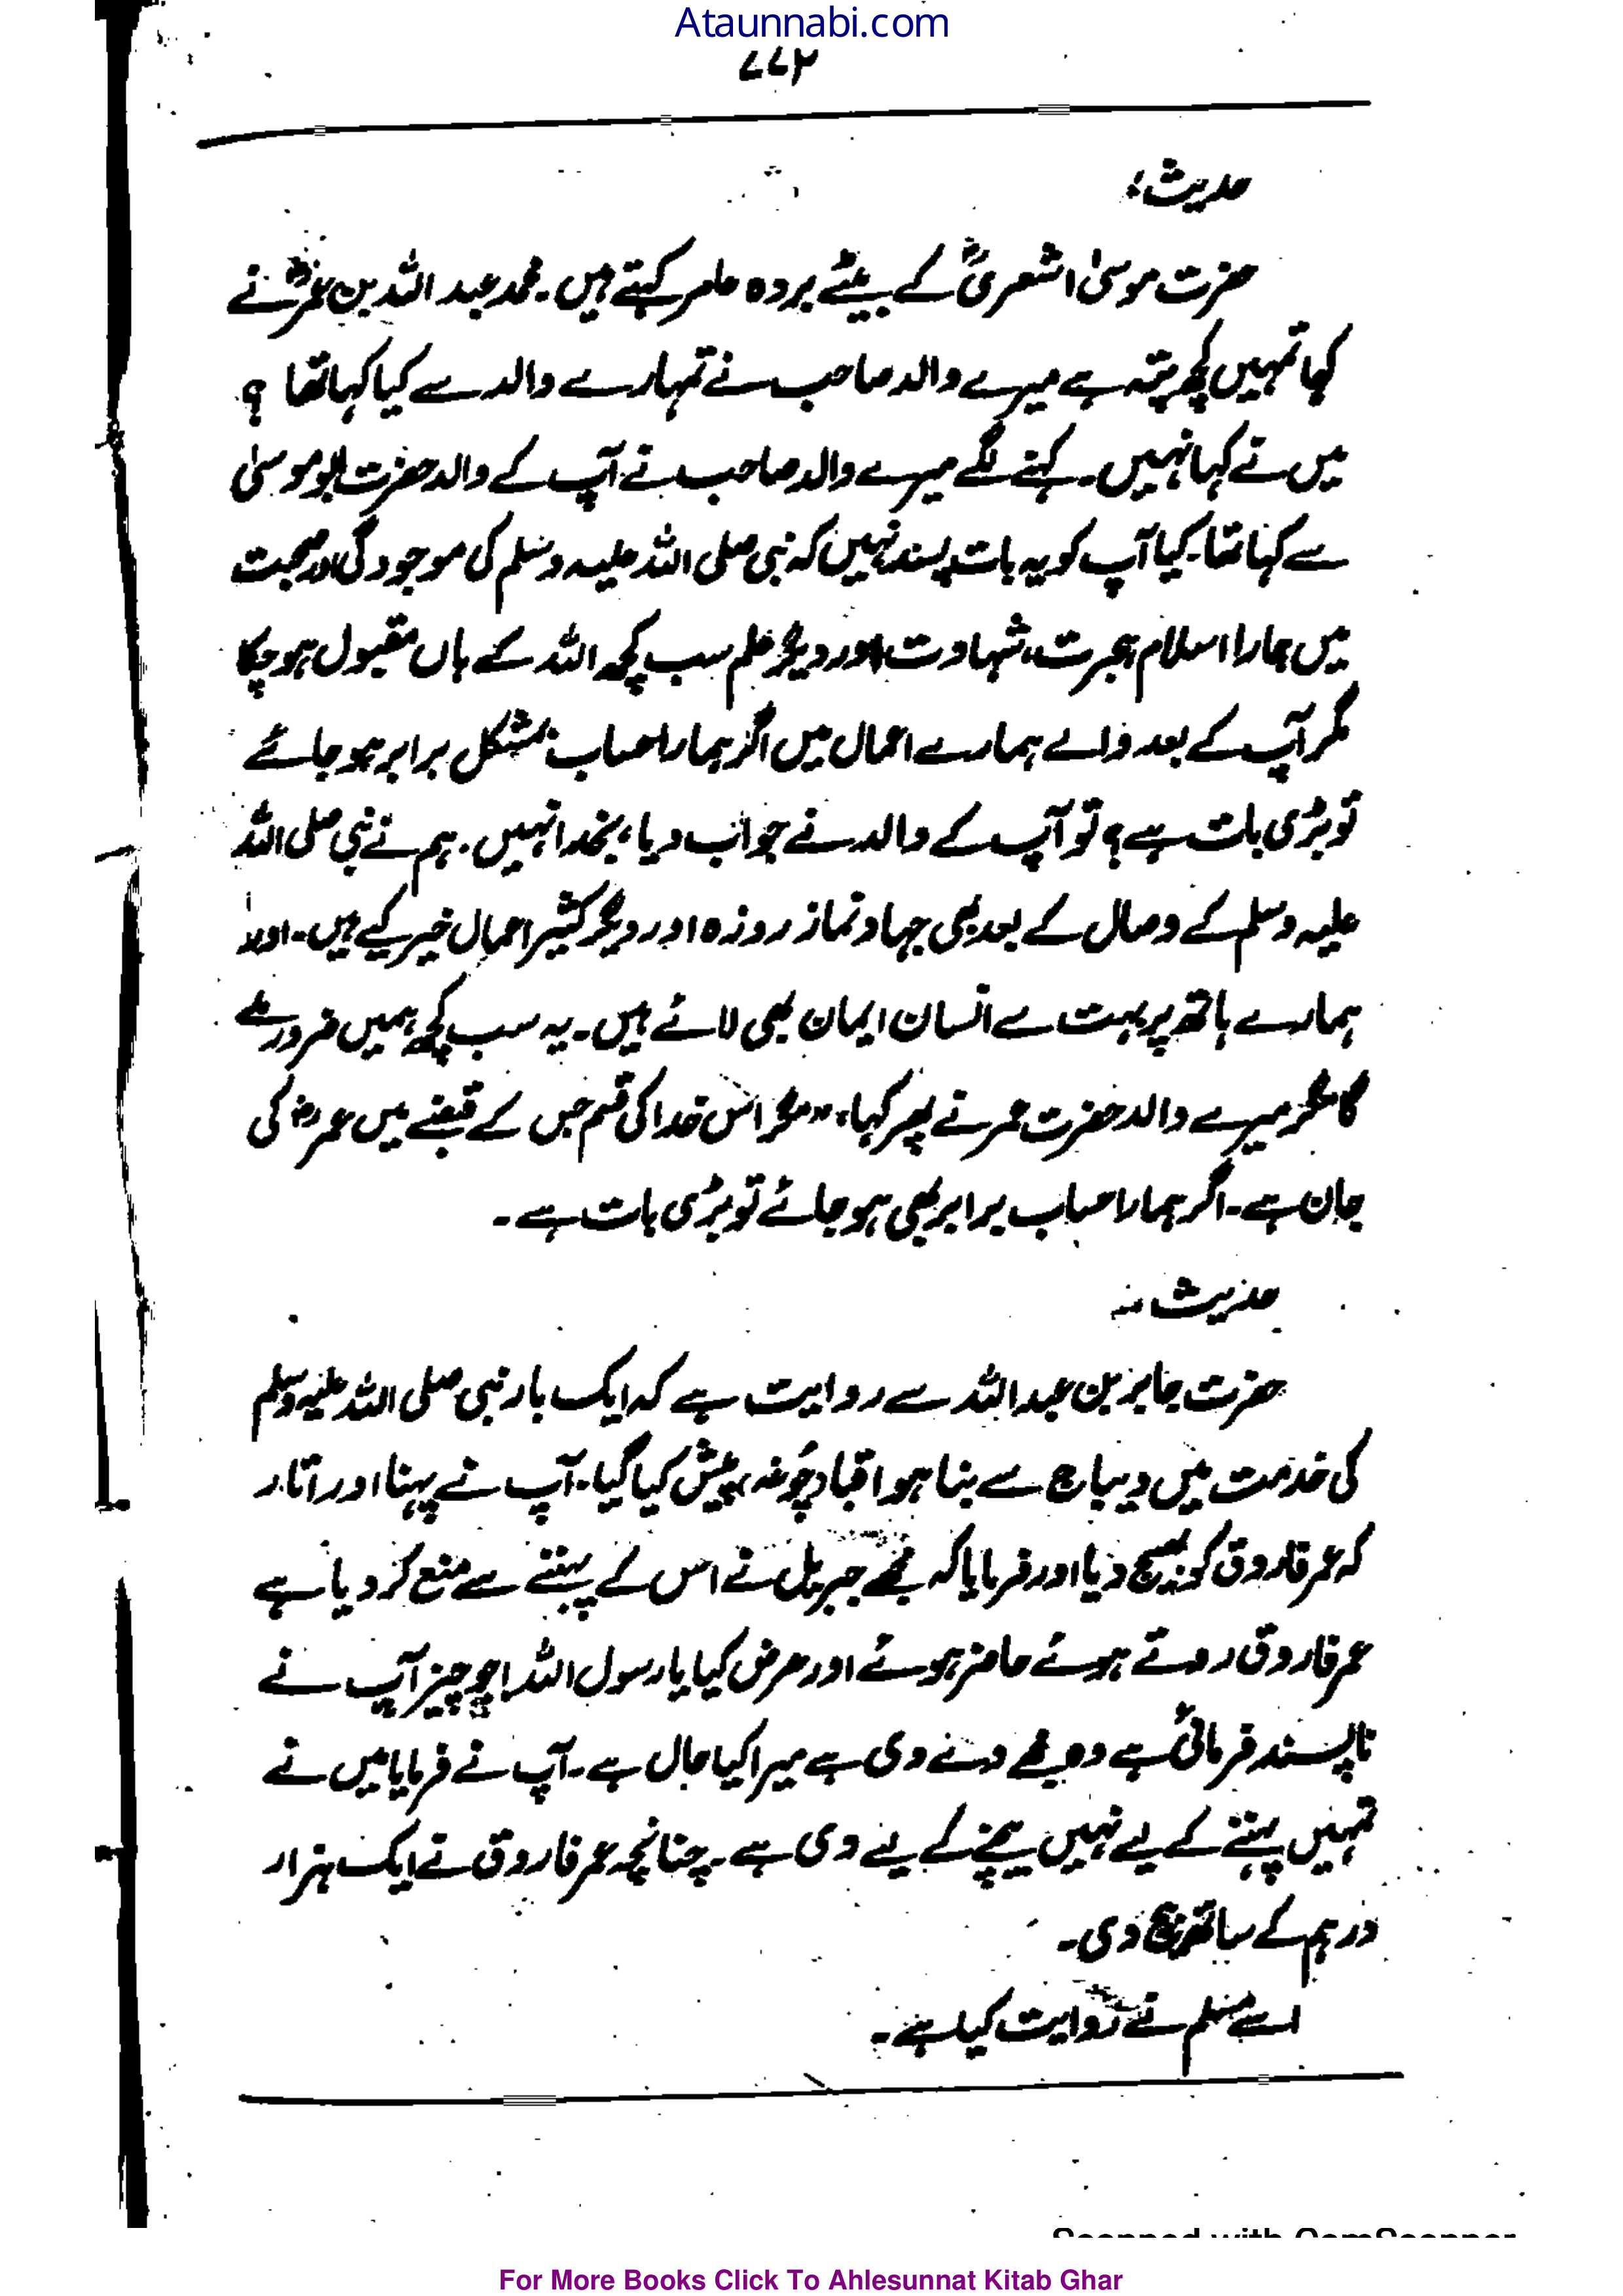 Ataunnabi.com
۷۷۲
حدیث:
حضرت موسیٰ اشعریؓ کے بیٹے بردہ عامر کہتے ہیں۔ مجھ عبد اللہ بن عمرؓ نے
کہا تمہیں کچھ پتہ ہے میرے والد صاحب نے تمہارے والد سے کیا کہا تھا ؟
میں نے کہا نہیں۔ کہنے لگے میرے والد صاحب نے آپ کے والد حضرت ابو موسیٰ
سے کہا تھا۔ کیا آپ کو یہ بات پسند نہیں کہ نبی صلی اللہ علیہ وسلم کی موجودگی اور صحبت
میں ہمارا اسلام، ہجرت، شہادت اور دیگر علم سب کچھ اللہ کے ہاں مقبول ہو چکا
مگر آپ کے بعد والے ہمارے اعمال میں اگر ہمارا حساب بمشکل برابر ہو جائے
تو بڑی بات ہے؟ تو آپ کے والد نے جواب دیا، بخدا نہیں۔ ہم نے نبی صلی اللہ
علیہ وسلم کے وصال کے بعد بھی جہاد نماز روزہ اور دیگر کثیر اعمال خیر کیے ہیں۔ اور
ہمارے ہاتھ پر بہت سے انسان ایمان بھی لائے ہیں۔ یہ سب کچھ ہمیں ضرور ملے
گا مگر میرے والد حضرت عمر نے پھر کہا، "مگر اس خدا کی قسم جس کے قبضے میں عمرؓ کی
جان ہے۔ اگر ہمارا حساب برابر بھی ہو جائے تو بڑی بات ہے۔
حدیث :۔
حضرت جابر بن عبداللہ سے روایت ہے کہ ایک بار نبی صلی اللہ علیہ وسلم
کی خدمت میں دیباج سے بنا ہوا قبا (چُوغہ) پیش کیا گیا۔ آپ نے پہنا اور اتار
کر عمر فاروق کو بھیج دیا اور فرمایا کہ مجھے جبریل نے اس کے پہننے سے منع کر دیا ہے
عمر فاروق روتے ہوئے حاضر ہوئے اور عرض کیا یا رسول اللہ! جو چیز آپ نے
ناپسند فرمائی ہے وہ مجھے دے دی ہے میرا کیا حال ہے۔ آپ نے فرمایا میں نے
تمہیں پہننے کے لیے نہیں بیچنے کے لیے دی ہے۔ چنانچہ عمر فاروق نے ایک ہزار
درہم کے ساتھ بیچ دی۔
اسے مسلم نے روایت کیا ہے۔
Scanned with CamScanner
For More Books Click To Ahlesunnat Kitab Ghar